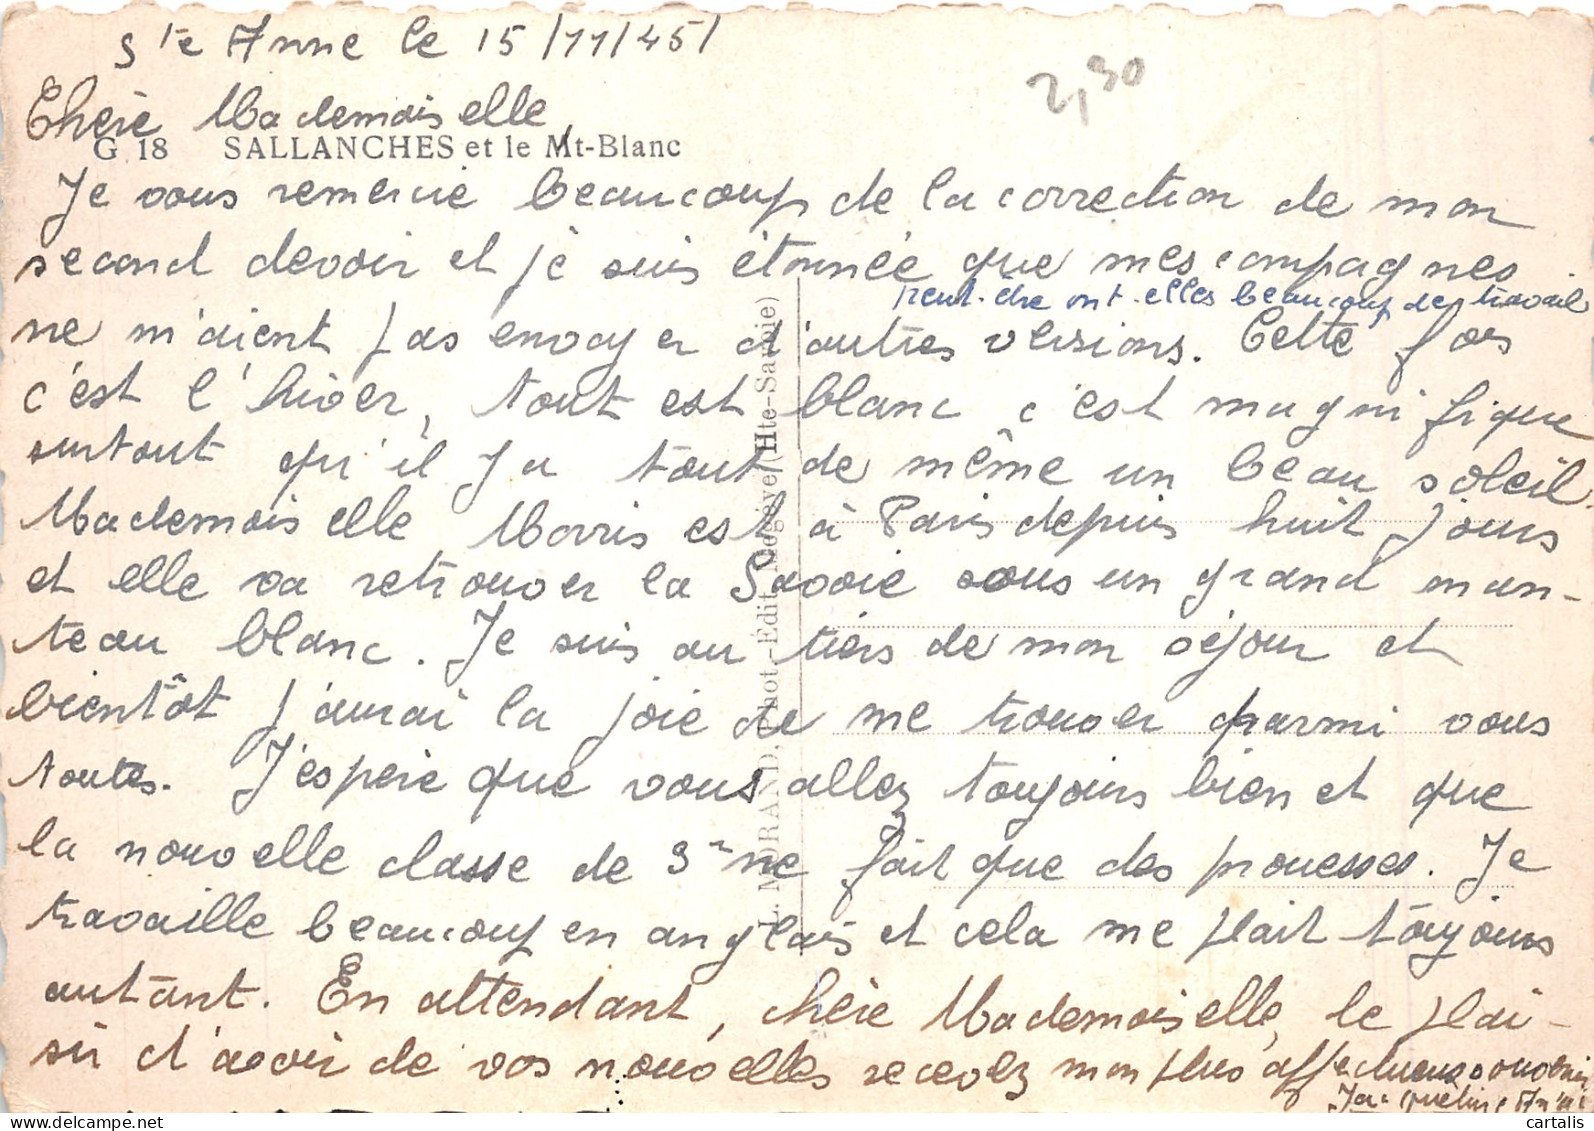 Ste Anne le 15/11/45
2,30
Chère Mademoiselle,
G 18 SALLANCHES et le Mt-Blanc
Je vous remercie beaucoup de la correction de mon
second devoir et je suis étonnée que mes compagnes
peut-être ont-elles beaucoup de travail
ne m'aient pas envoyer d'autres versions. Cette fois
c'est l'hiver, tout est blanc c'est magnifique
surtout qu'il y a tout de même un beau soleil.
Mademoiselle Morris est à Paris depuis huit jours
et elle va retrouver la Savoie sous un grand man-
teau blanc. Je suis au tiers de mon séjour et
bientôt j'aurai la joie de me trouver parmi vous
toutes. J'espère que vous allez toujours bien et que
la nouvelle classe de 3e ne fait que des prouesses. Je
travaille beaucoup en anglais et cela me plait toujours
autant. En attendant, chère Mademoiselle, le plai-
sir d'avoir de vos nouvelles recevez mon plus affectueux souvenir
Jacqueline
L. MORAND, Phot.-Édit. Megève (Hte-Savoie)
cartalis
delcampe.net